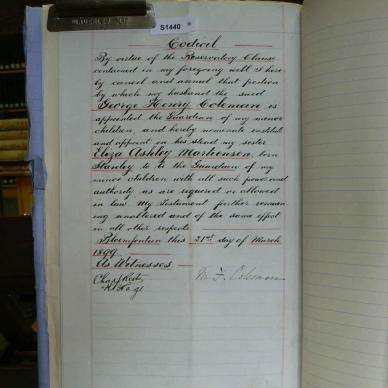 S1440
Codicil
By virtue of the Reservatory Clause
contained in my foregoing will I here-
by cancel and annul that portion
by which my husband the said
George Henry Coleman is
appointed the Guardian of my minor
children, and hereby nominate institute
and appoint in his stead my sister
Eliza Ashley Martienson, born
Stanley to be the Guardian of my
minor children with all such power and
authority as are required or allowed
in law. My Testament further remain-
ing unaltered and of the same effect
in all other respects.
Bloemfontein this 21st day of March
1899.
As Witnesses.
M. F. Coleman